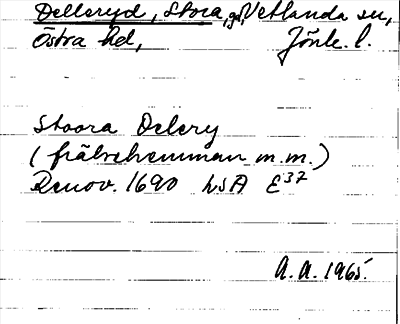 Delleryd, Stora, gd, Vetlanda sn,
Östra hd, Jönk. l.
Stoora Delery
(frälsehemman m.m.)
Renov. 1690 LSA E37
A.A. 1965.